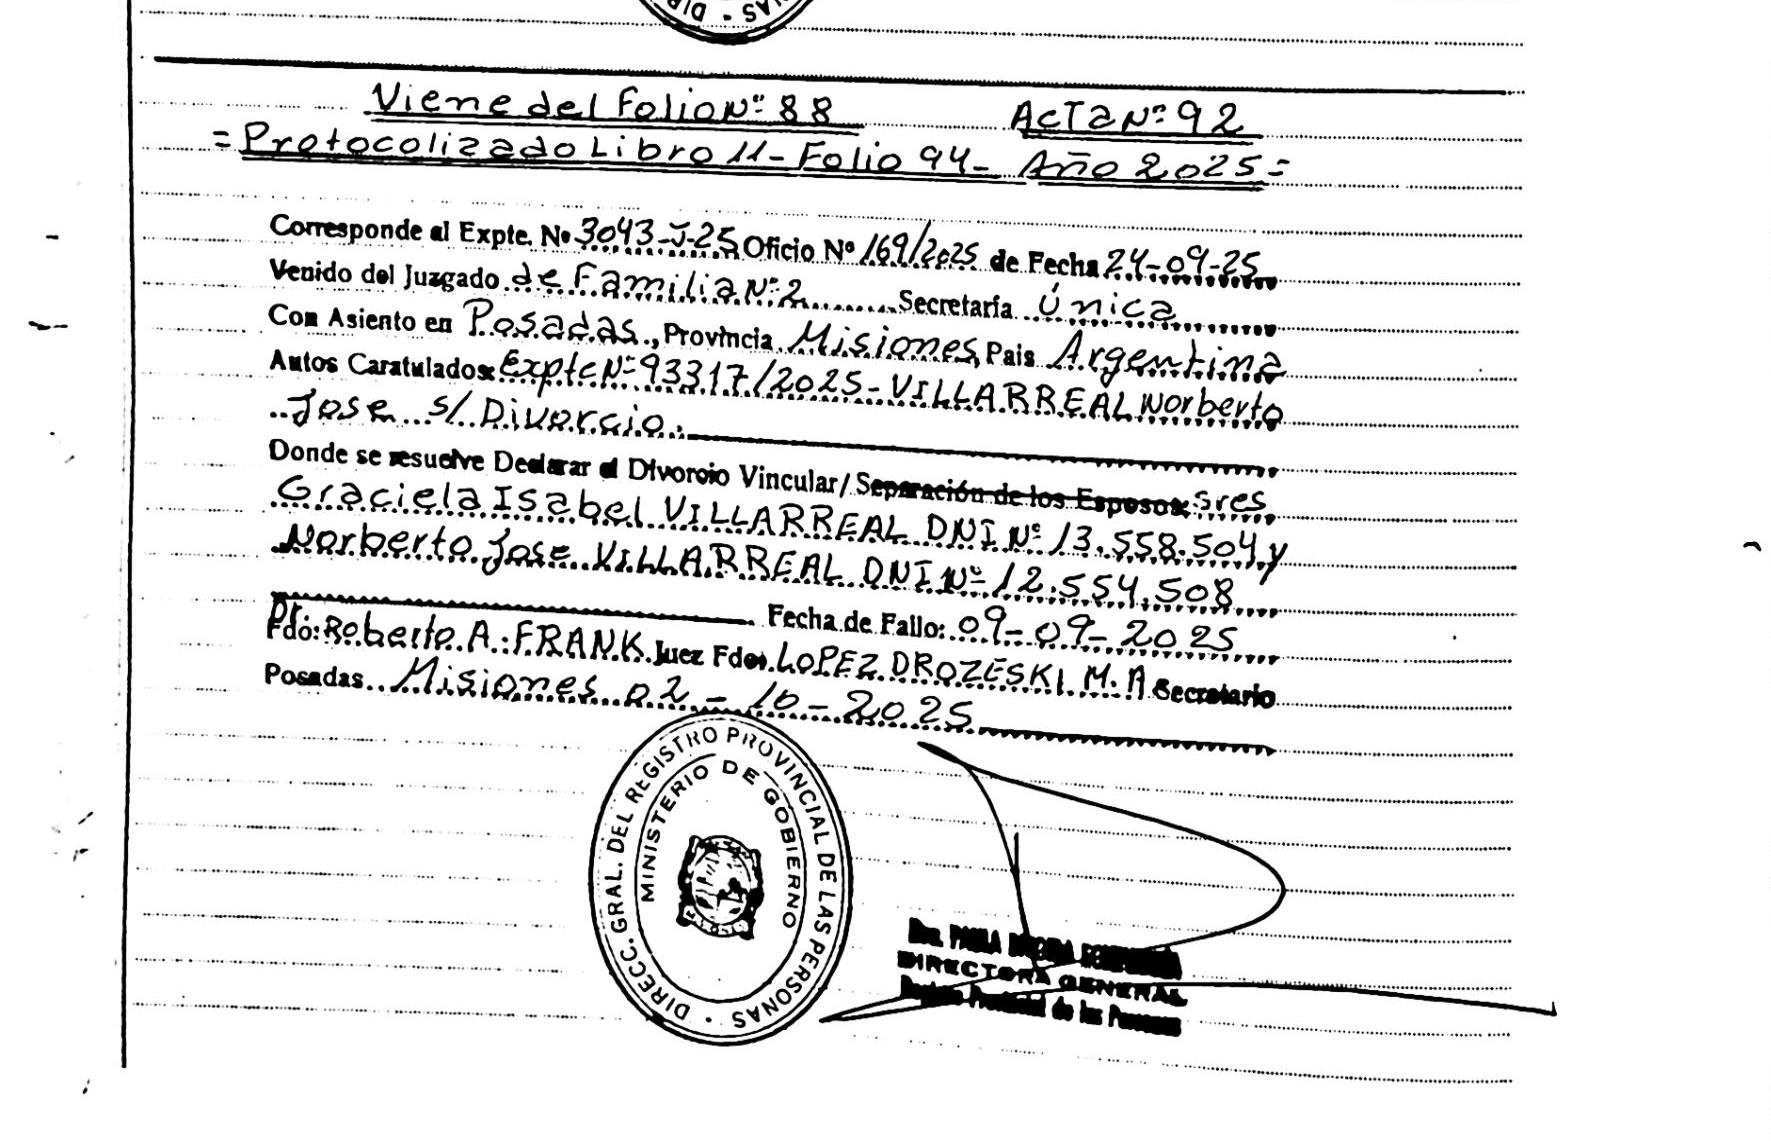 Viene del Folio Nº 88 Acta Nº 92
= Protocolizado Libro 11 - Folio 94 - Año 2025 =
Corresponde al Expte. Nº 3043-J-25 Oficio Nº 169/2025 de Fecha 24-09-25
Venido del Juzgado de Familia Nº 2 Secretaría Única
Con Asiento en Posadas, Provincia Misiones, Pais Argentina
Autos Caratulados: Expte Nº 93317/2025 - VILLARREAL Norberto
Jose s/ Divorcio.
Donde se resuelve Declarar el Divorcio Vincular/Separación de los Esposos: Sres
Graciela Isabel VILLARREAL DNI Nº 13.558.504 y
Norberto Jose VILLARREAL DNI Nº 12.554.508
Fecha de Fallo: 09-09-2025
Fdo: Dr. Roberto A. FRANK Juez Fdo: LOPEZ DROZESKI M. A Secretario
Posadas Misiones 02-10-2025
DIRECC. GRAL. DEL REGISTRO PROVINCIAL DE LAS PERSONAS
MINISTERIO DE GOBIERNO
Dra. PAULA
DIRECTORA GENERAL
Registro Provincial de las Personas